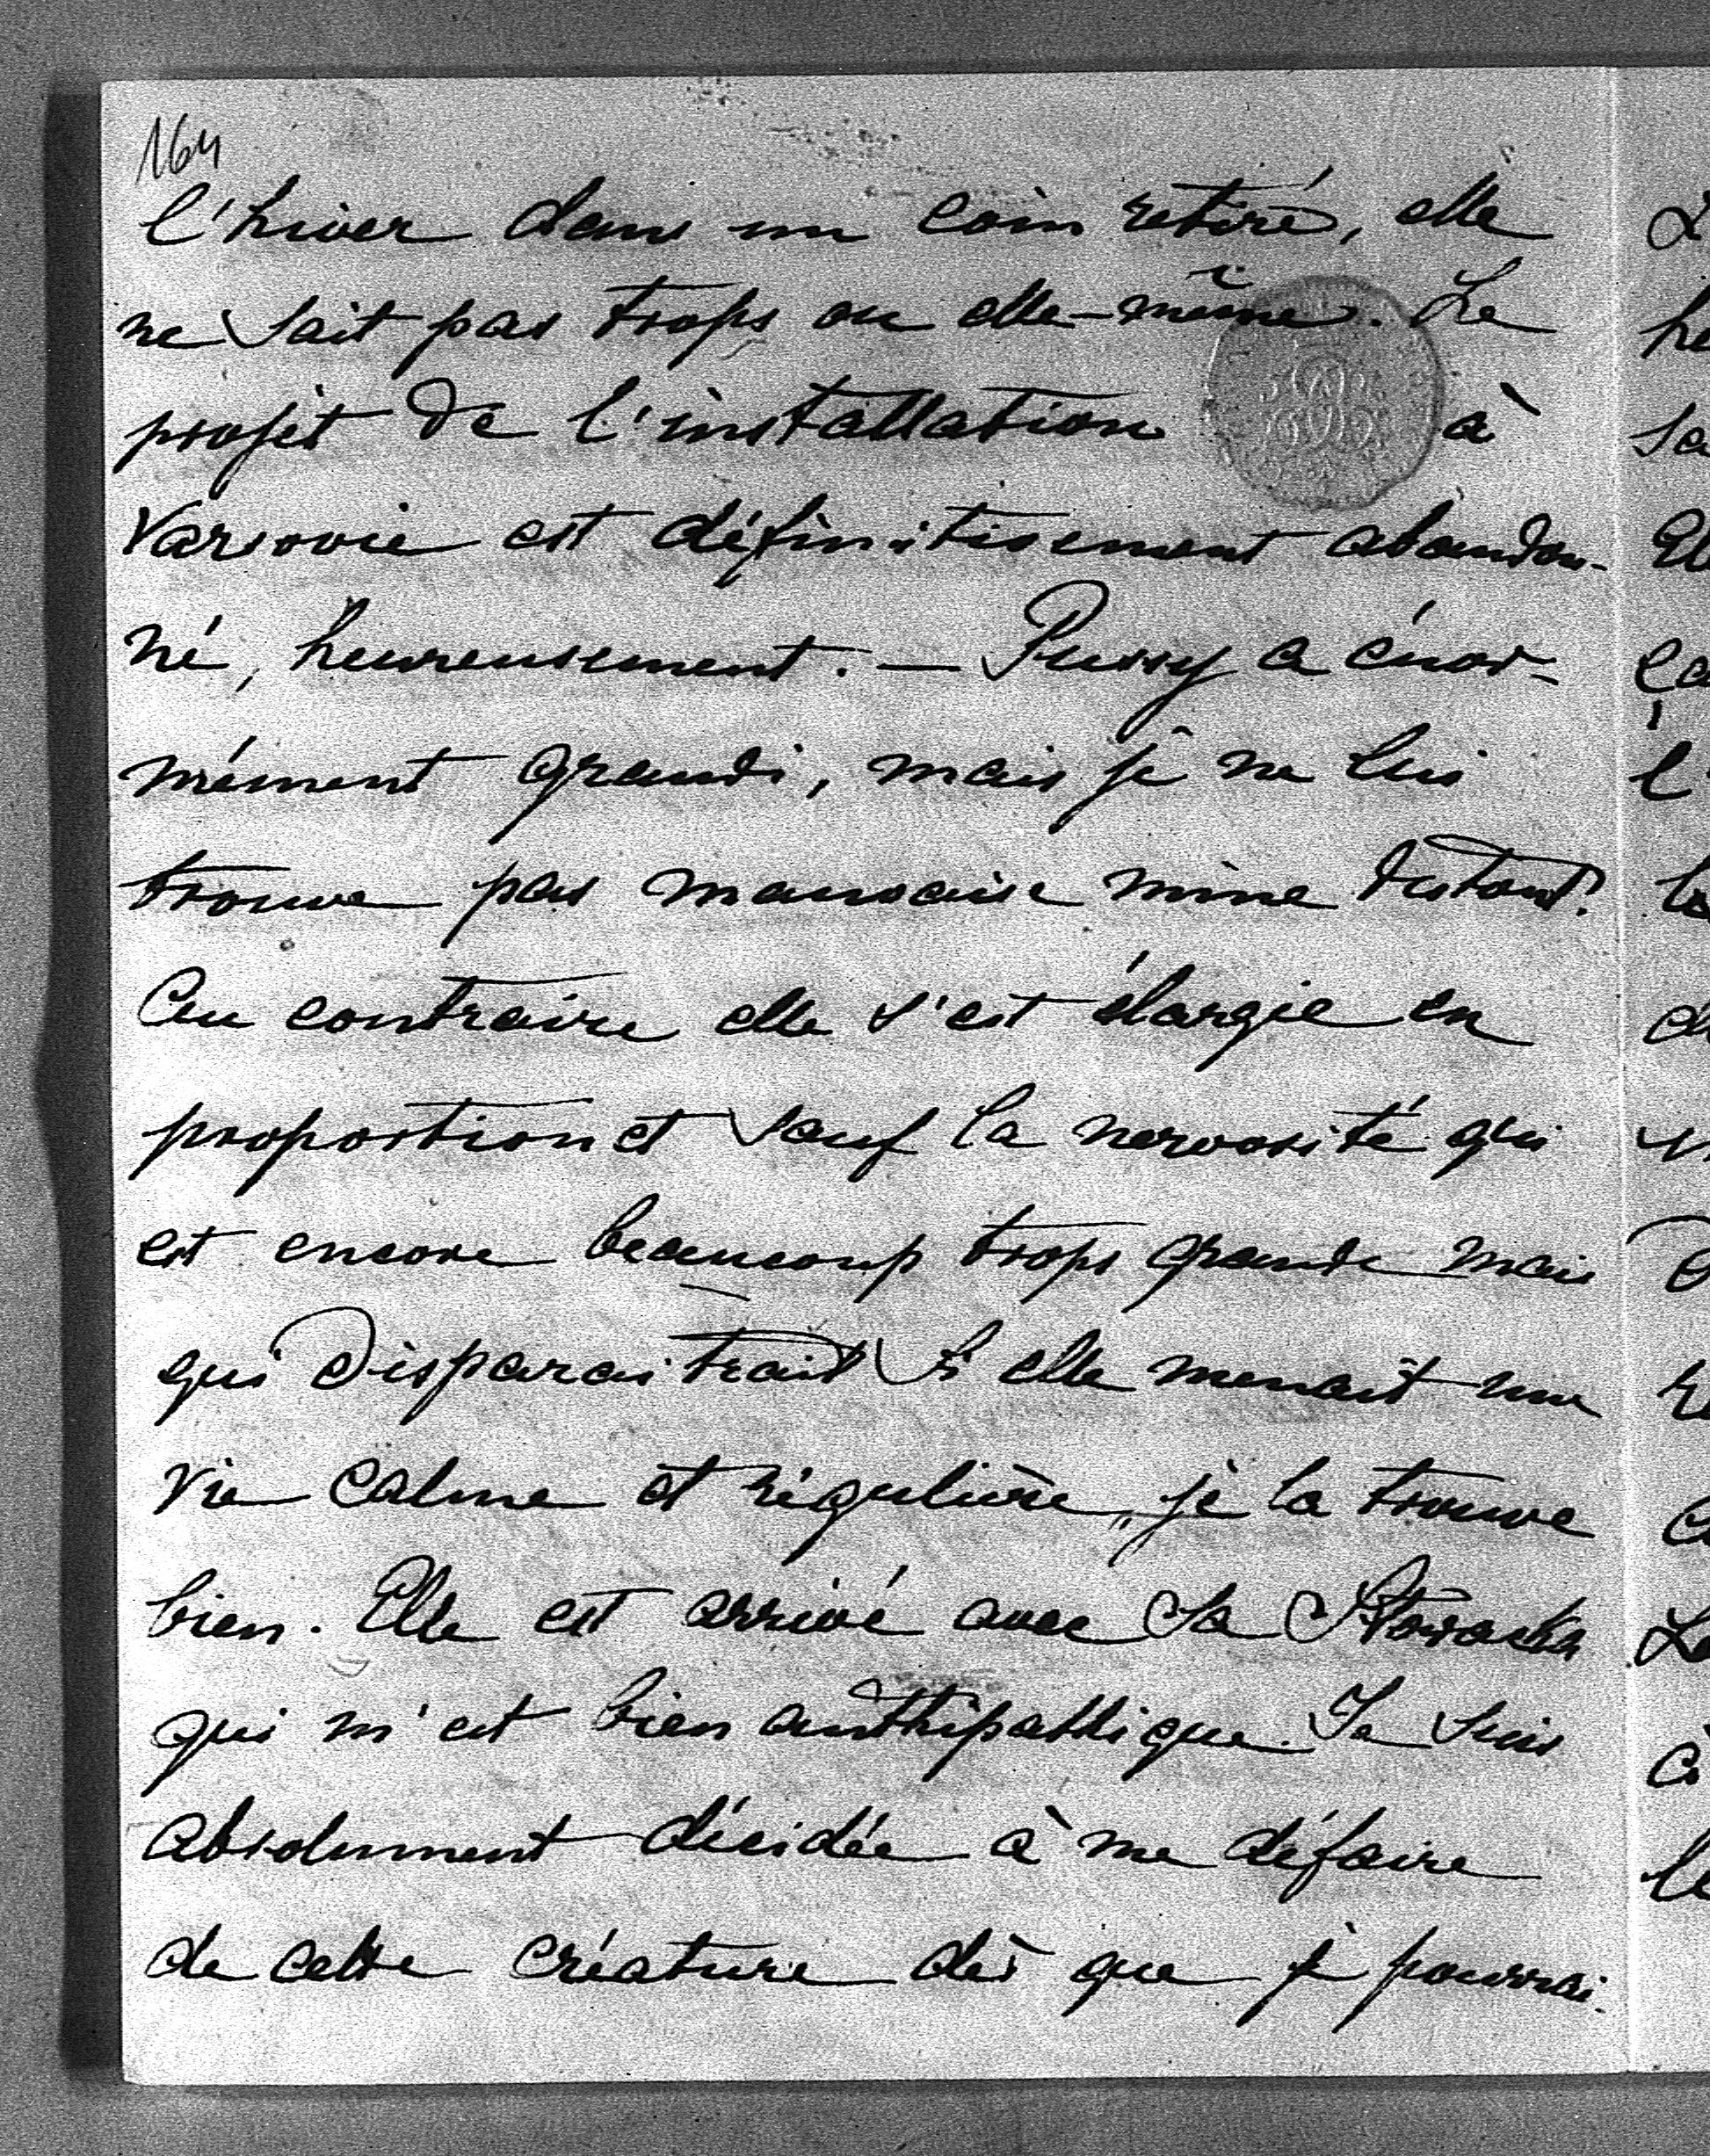 164
l'hiver dans un coin retiré, elle
ne sait pas trops ou elle-même. Le
projet de l'installation à
Varsovie est définitivement abandon-
né, heureusement. — Pussy a énor-
mément grandi, mais je ne lui
trouve pas mauvaise mine du tout.
Au contraire elle s'est élargie en
proportion et sauf la nervosité qui
est encore beaucoup trops grande mais
qui disparaitrait si elle menait une
vie calme et régulière, je la trouve
bien. Elle est arrivé avec sa
qui m'est bien anthipathique. Je suis
absolument décidée à me défaire
de cette créature dès que je pourrai.